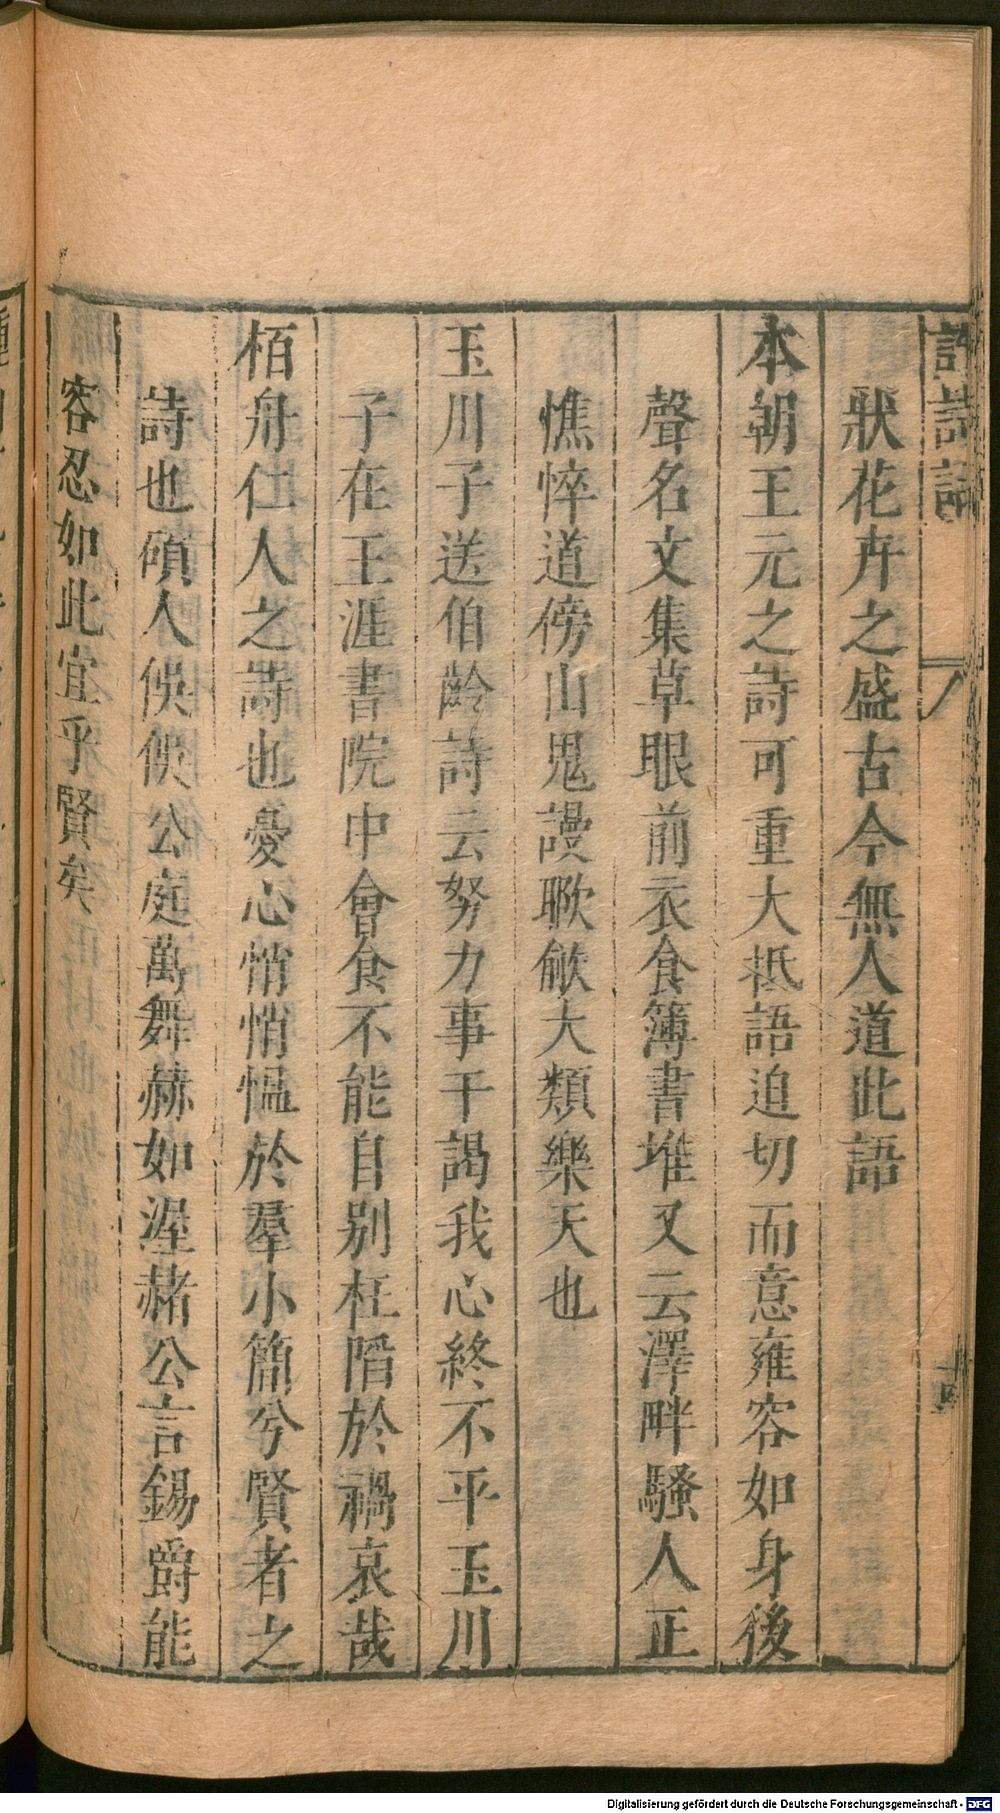 狀花卉之盛古今無人道此語
本朝王元之詩可重大抵語迫切而意雍容如身後
聲名文集草眼前衣食簿書堆又云澤畔騷人正
憔悴道傍山鬼謾歌欨大類樂天也
玉川子送伯齡詩云努力事干謁我心終不平玉川
子在王涯書院中會食不能自别枉階於禍哀哉
栢舟仁人之詩也憂心悄悄愠於羣小簡兮賢者之
詩也碩人俁俁公庭萬舞赫如渥赭公言錫爵能
容忍如此宜乎賢矣
Digitalisierung gefördert durch die Deutsche Forschungsgemeinschaft - DFG